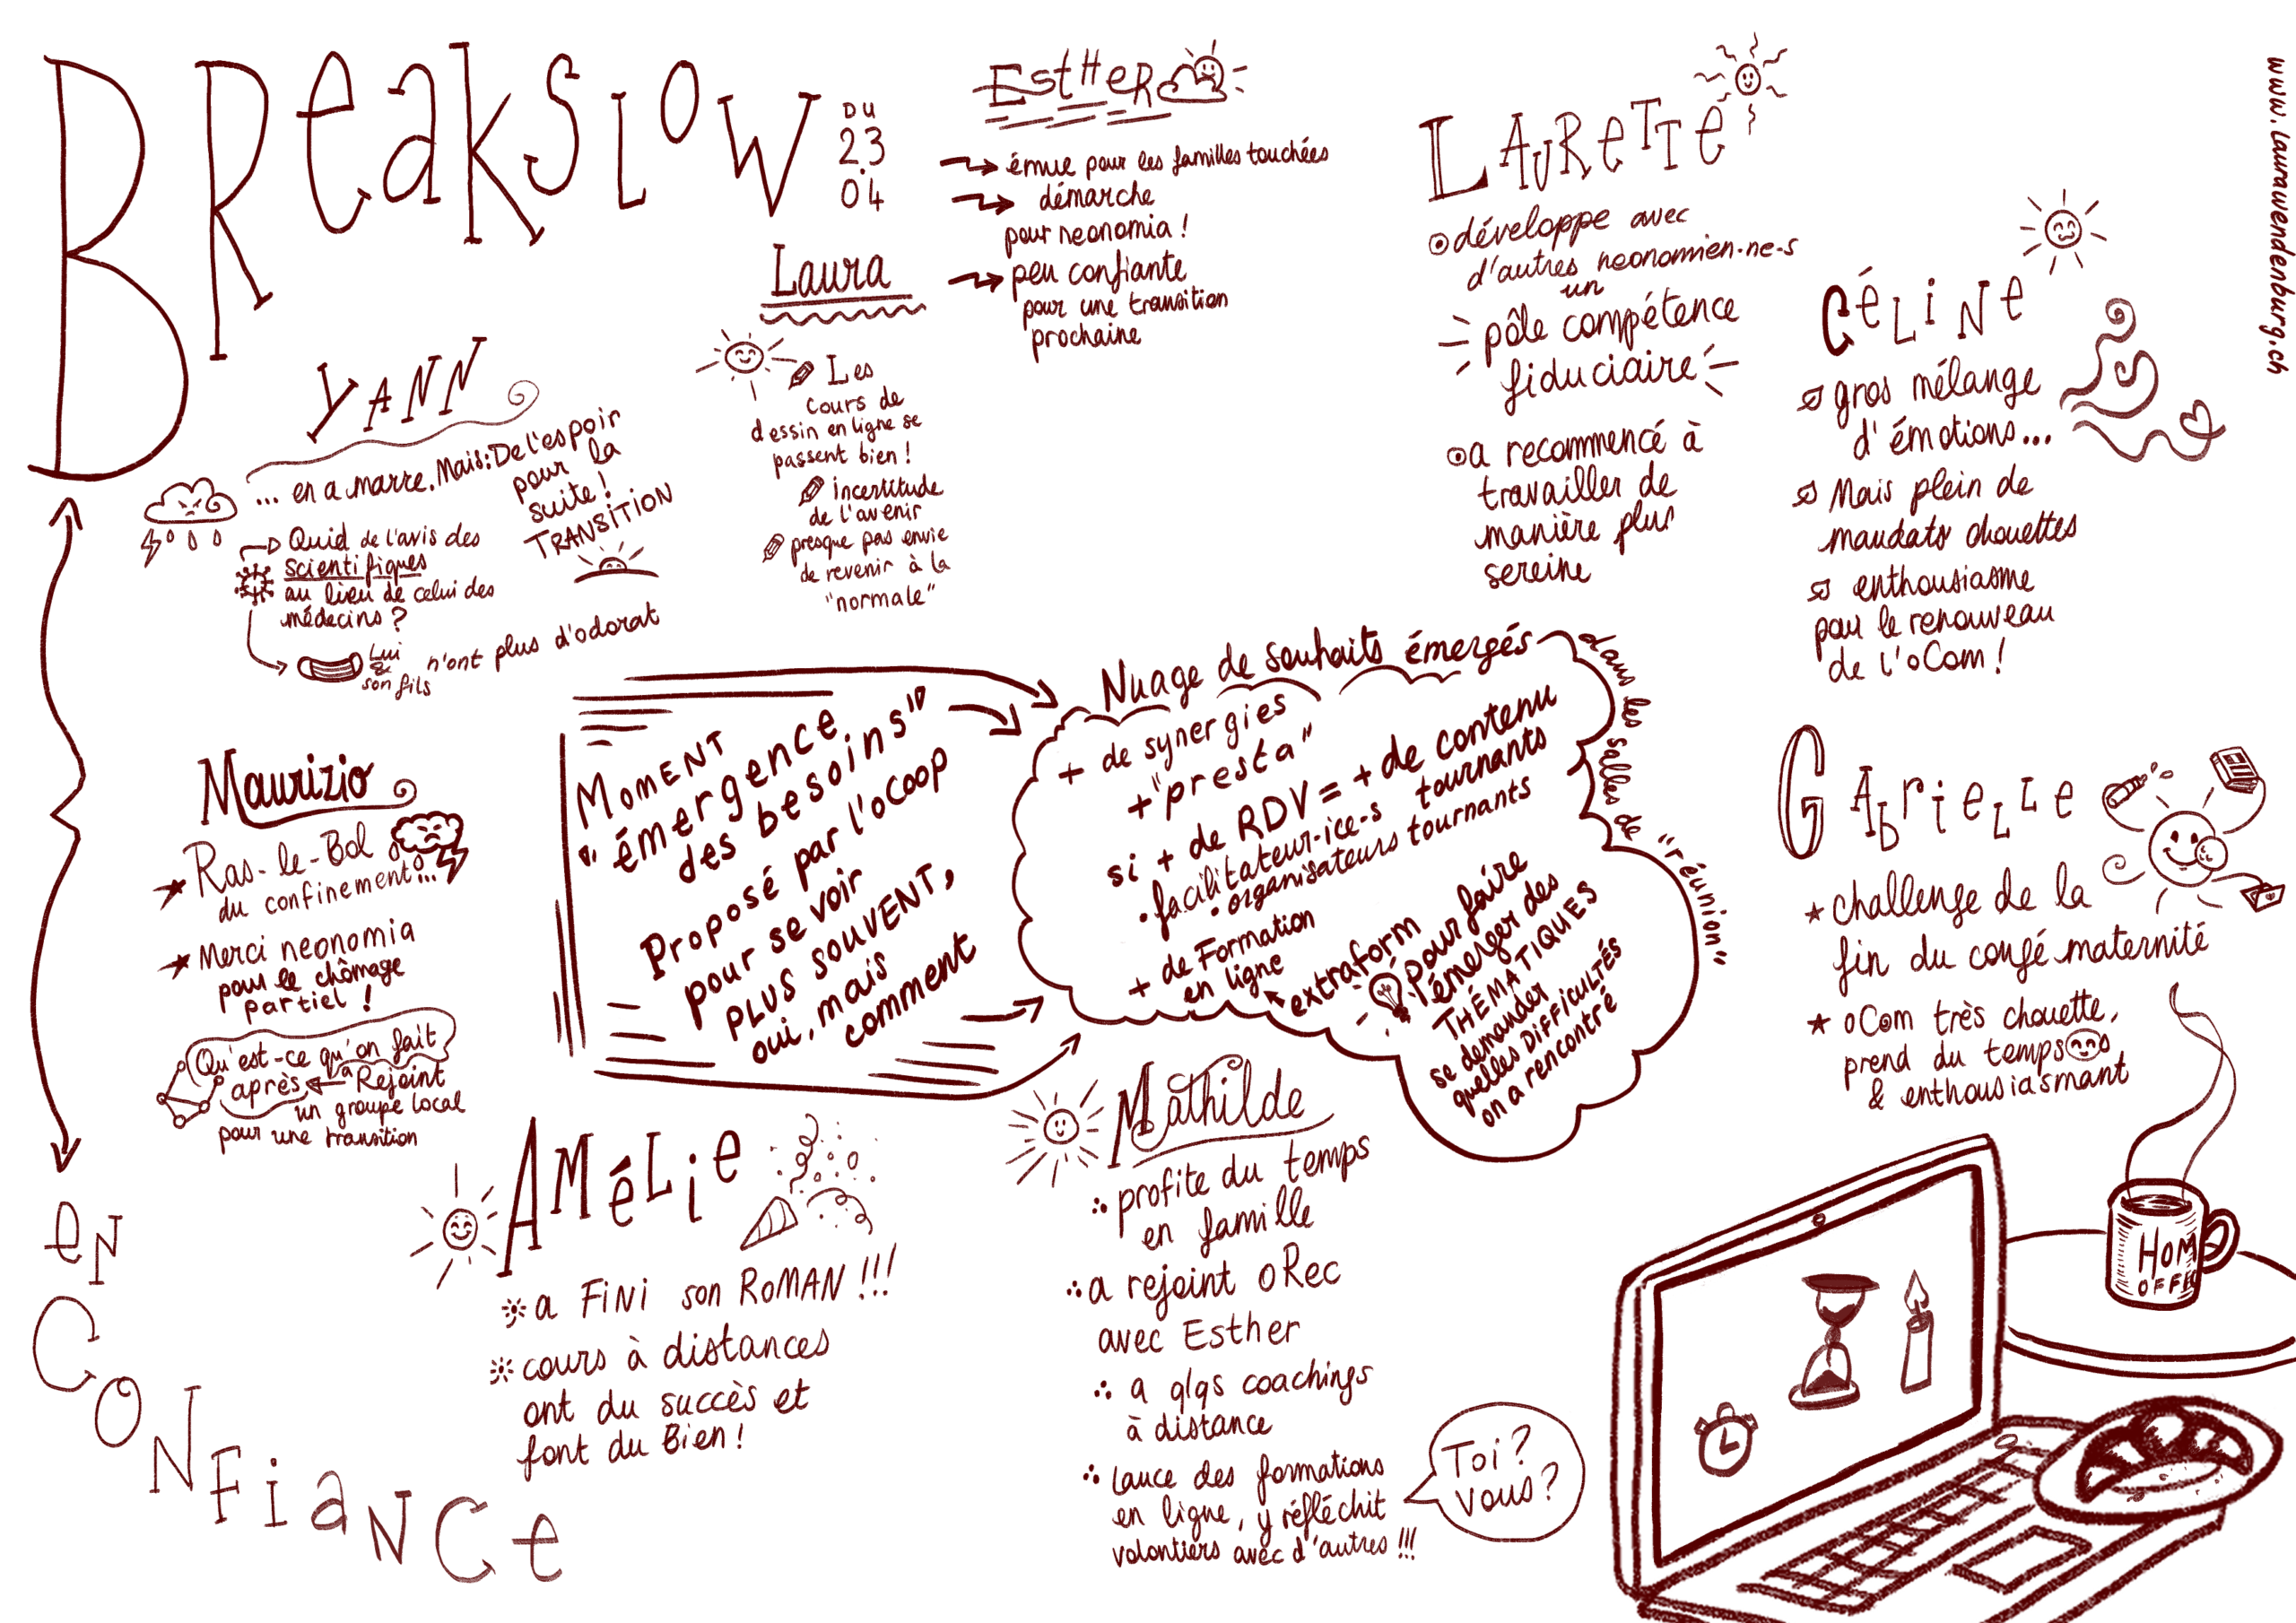 BReakslow
DU
23
04
EstHeR
émue pour les familles touchées
démarche
pour neonomia !
peu confiante
pour une transition
prochaine
Laura
Les
cours de
dessin en ligne se
passent bien !
incertitude
de l'avenir
presque pas envie
de revenir à la
"normale"
LAuReTTe
développe avec
d'autres neonomien·ne·s
un
pôle compétence
fiduciaire
a recommencé à
travailler de
manière plus
sereine
CéLiNe
gros mélange
d'émotions...
Mais plein de
mandats chouettes
enthousiasme
pour le renouveau
de l'oCom !
www.laurawendenburg.ch
YANN
... en a marre. Mais: De l'espoir
pour la
suite !
TRANSITION
Quid de l'avis des
scientifiques
au lieu de celui des
médecins ?
Lui
&
son fils
n'ont plus d'odorat
Maurizio
Ras-le-Bol
du confinement...
Merci neonomia
pour le chômage
partiel !
Qu'est-ce qu'on fait
après
a Rejoint
un groupe local
pour une transition
MOMENT
"émergence
des besoins"
Proposé par l'oCoop
pour se voir
PLUS SOUVENT,
oui, mais
comment
Nuage de souhaits émergés
dans les salles de "réunion"
+ de synergies
+ "presta"
si + de RDV = + de contenu
• facilitateur·ice·s tournants
• organisateurs tournants
+ de Formation
en ligne
extraform
pour faire
émerger des
THÉMATIQUES
se demander
quelles DIFFICULTÉS
on a rencontré
GAbrieLLe
challenge de la
fin du congé maternité
oCom très chouette,
prend du temps
& enthousiasmant
AMéLie
a FiNi son RoMAN !!!
cours à distances
ont du succès et
font du Bien !
Mathilde
profite du temps
en famille
a rejoint oRec
avec Esther
a qlqs coachings
à distance
lance des formations
en ligne, y réfléchit
volontiers avec d'autres !!!
Toi ?
Vous ?
HOM
OFFI
eN
CONFiaNCe